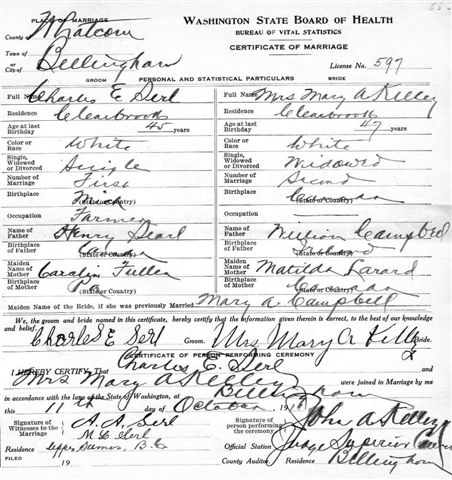 PLACE OF MARRIAGE
County of Whatcom
Town of
or
City of Bellingham
WASHINGTON STATE BOARD OF HEALTH
BUREAU OF VITAL STATISTICS
CERTIFICATE OF MARRIAGE
License No. 597
GROOM PERSONAL AND STATISTICAL PARTICULARS BRIDE
Full Name Charles E Serl Full Name Mrs Mary A Kelley
Residence Clearbrook Residence Clearbrook
Age at last Birthday 45 years Age at last Birthday 47 years
Color or Race White Color or Race White
Single, Widowed or Divorced Single Single, Widowed or Divorced Widowed
Number of Marriage First Number of Marriage Second
Birthplace Mich (State or Country) Birthplace Canada (State or Country)
Occupation Farmer Occupation
Name of Father Henry Name of Father William Campbell
Birthplace of Father (State or Country) Birthplace of Father (State or Country)
Maiden Name of Mother Fuller Maiden Name of Mother Matilda
Birthplace of Mother (State or Country) Birthplace of Mother Canada (State or Country)
Maiden Name of the Bride, if she was previously Married Mary A. Campbell
We, the groom and bride named in this certificate, hereby certify that the information given therein is correct, to the best of our knowledge
and belief.
Charles E Serl Groom. Mrs Mary A Bride.
CERTIFICATE OF PERSON PERFORMING CEREMONY
I HEREBY CERTIFY That Charles E. Serl
Mrs Mary A Kelley were joined in Marriage by me
in accordance with the laws of the State of Washington, at Bellingham
this 11th day of October 191
Signatures of Witnesses to the Marriage A. A. Serl
M Serl
Signature of person performing the ceremony John A Kellogg
Official Station Judge Superior Court
Residence B.C.
County Auditor. Residence Bellingham
FILED 19